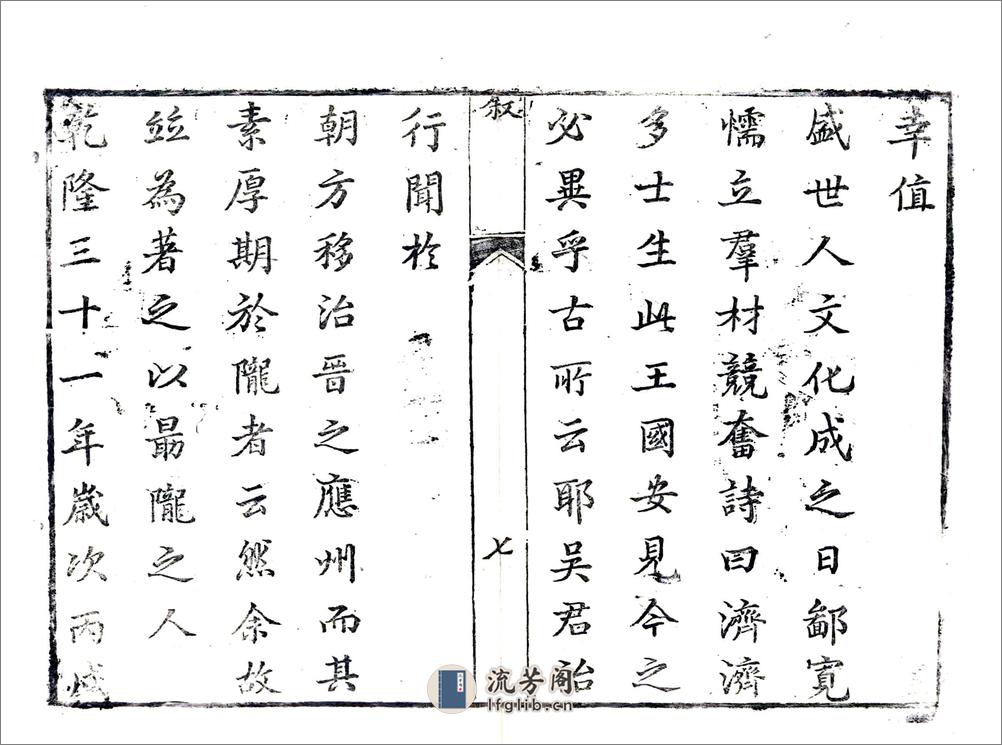 幸值
盛世人文化成之日鄙寬
懦立羣材競奮詩曰濟濟
多士生此王國安見今之
必異乎古所云耶吳君治
叙
七
行聞於
朝方移治晉之應州而其
素厚期於隴者云然余故
並為著之以勗隴之人
乾隆三十一年歲次丙戌
流芳阁
lfglib.cn